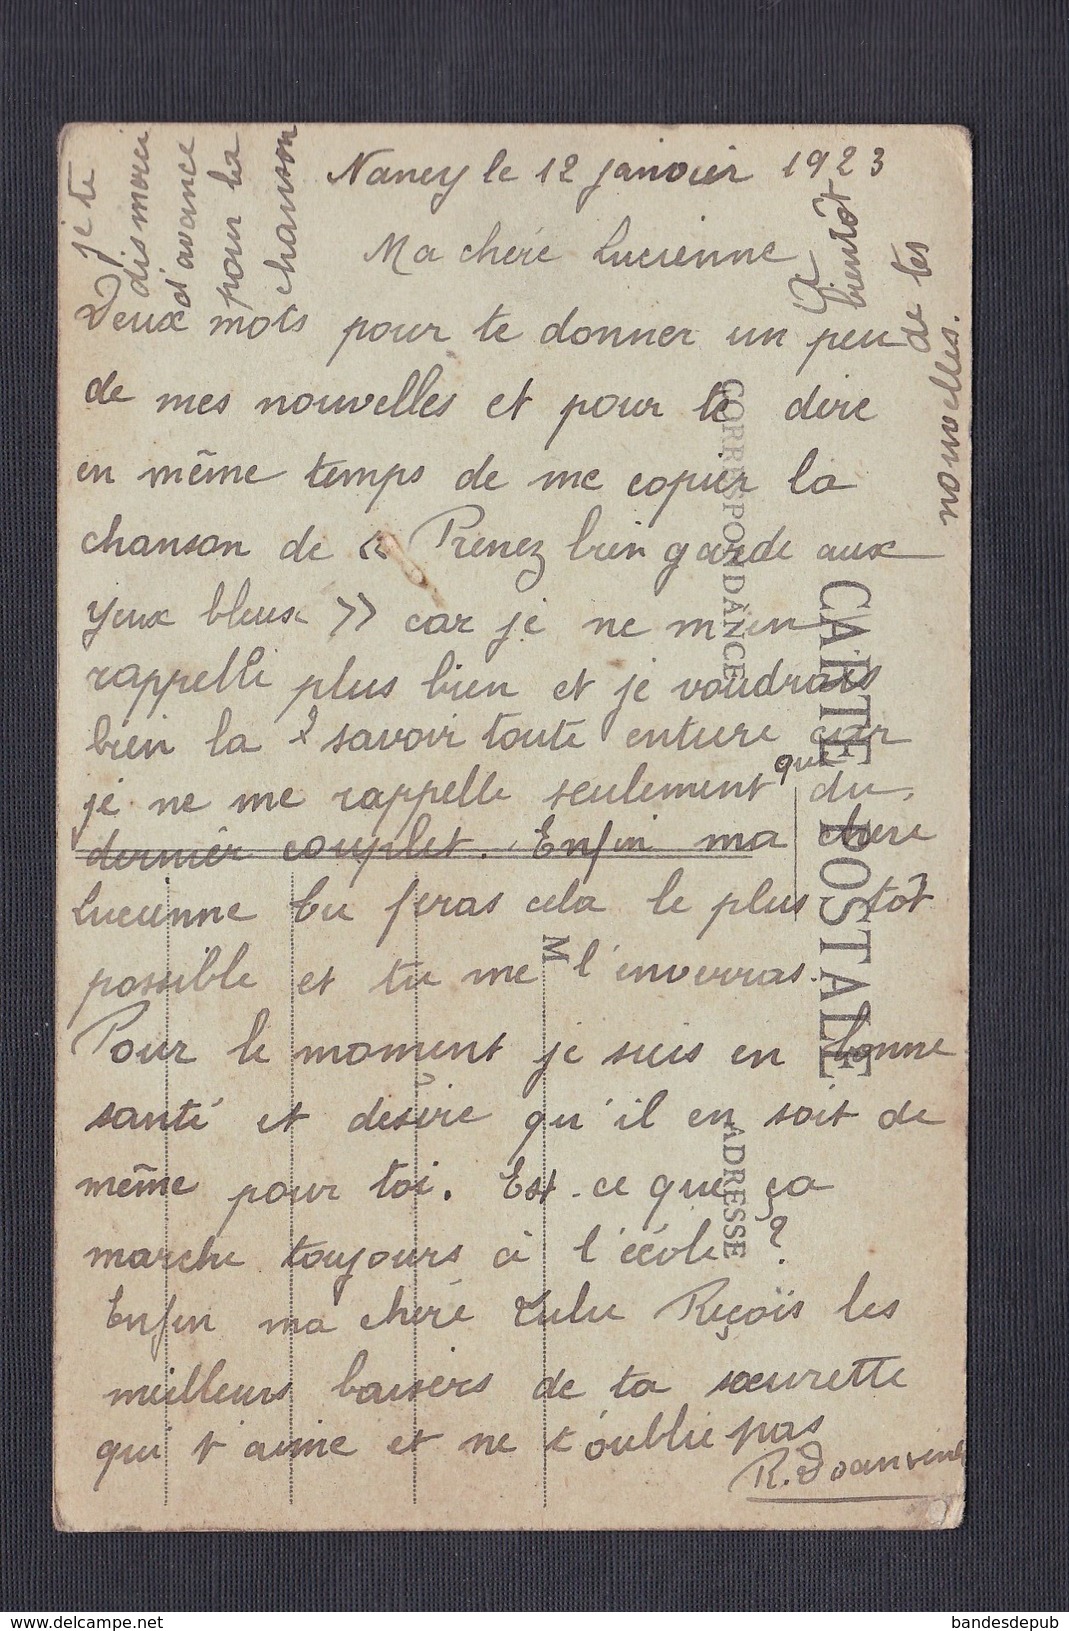 Nancy le 12 janvier 1923
Ma chère Lucienne
Deux mots pour te donner un peu
de mes nouvelles et pour te dire
en même temps de me copier la
chanson de « Prenez bien garde aux
yeux bleus » car je ne m'en
rappelle plus bien et je voudrais
bien la savoir toute entière car
je ne me rappelle seulement que du
dernier couplet. Enfin ma chère
Lucienne tu feras cela le plus tôt
possible et tu me l'enverras.
Pour le moment je suis en bonne
santé et désire qu'il en soit de
même pour toi. Est-ce que ça
marche toujours à l'école ?
Enfin ma chère Lulu Reçois les
meilleurs baisers de ta sœurette
qui t'aime et ne t'oublie pas
R.
je te
dis merci
d'avance
pour la
chanson
A
bientôt
de tes
nouvelles.
CARTE POSTALE
CORRESPONDANCE
ADRESSE
M
www.delcampe.net
bandesdepub